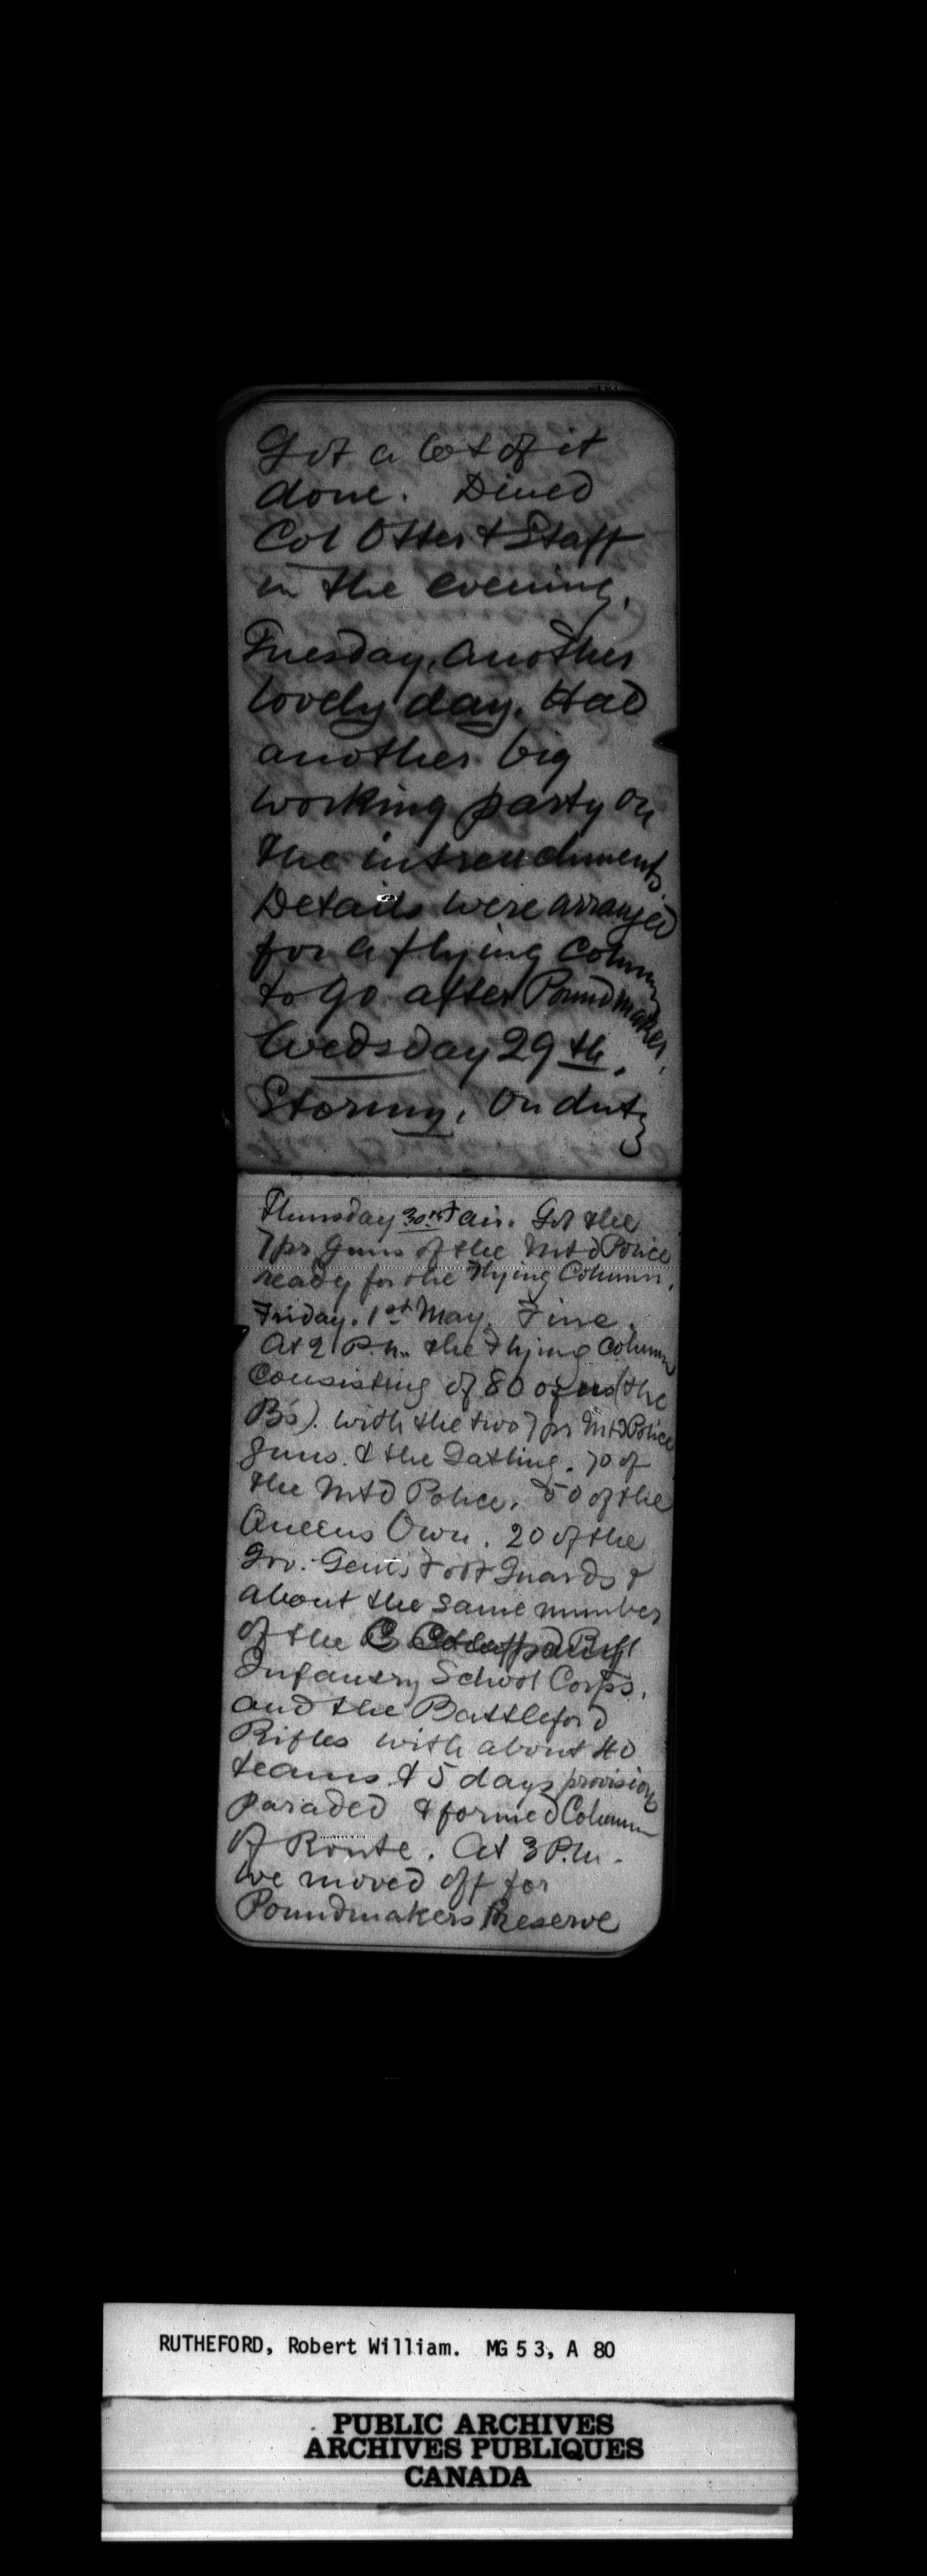 Got a lot of it
done. Dined
Col Otter & Staff
in the evening.
Tuesday, another
lovely day. Had
another big
working party on
the intrenchments.
Details were arranged
for a flying column
to go after Poundmaker.
Wedsday 29th.
Stormy. On duty
Thursday 30th Fair. Got the
7pr guns of the Mtd Police
ready for the Flying Column.
Friday. 1st May. Fine.
At 2 P.m. the Flying Column
Consisting of 80 of us (the
B's). with the two 7prs Mtd Police
guns. & the Gatling. 70 of
the Mtd Police. 50 of the
Queens Own. 20 of the
Gov. Genl's Foot Guards &
about the same number
of the C
Infantry School Corps.
and the Battleford
Rifles with about 40
teams & 5 days provisions
paraded & formed Column
of Route. At 3 P.m.
we moved off for
Poundmakers Reserve
RUTHEFORD, Robert William. MG 5 3, A 80
PUBLIC ARCHIVES
ARCHIVES PUBLIQUES
CANADA